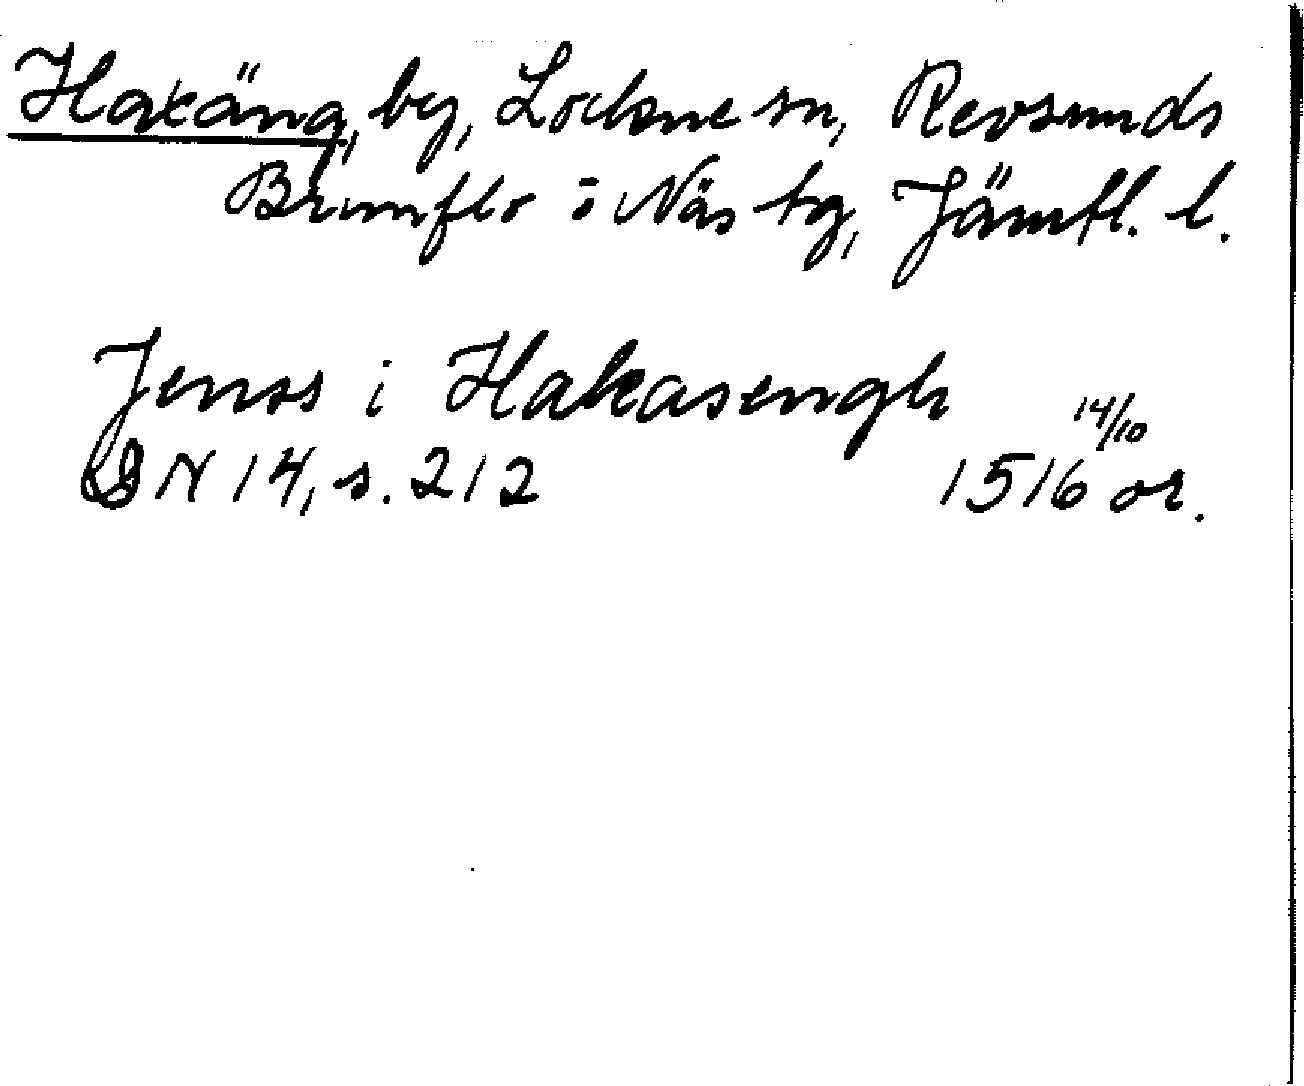 Hakäng, by, Lockne sn, Revsunds
Brunflo o Näs tg, Jämtl. l.
Jenss i Hakasengh
DN 14, s. 212 14/10 1516 or.